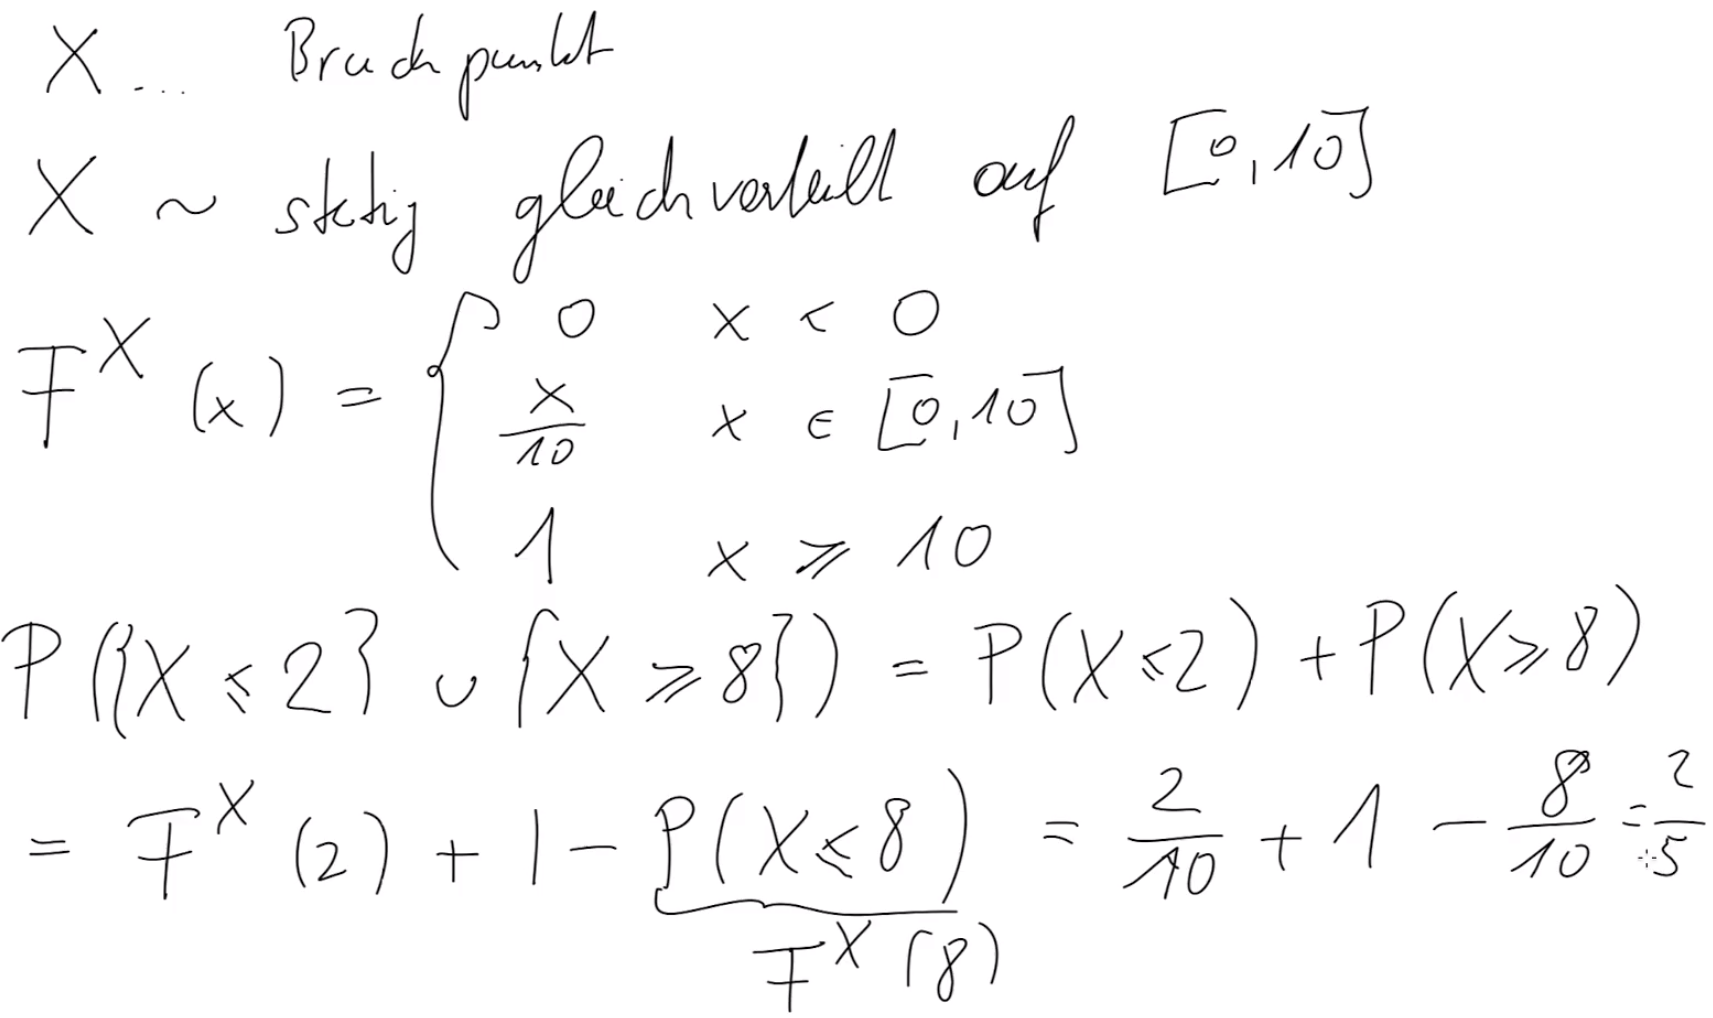 X ... Bruchpunkt
X ~ stetig gleichverteilt auf [0,10]
F^X (x) = { 0   x < 0
x/10   x ∈ [0,10]
1   x ≥ 10
P({X ≤ 2} ∪ {X ≥ 8}) = P(X ≤ 2) + P(X ≥ 8)
= F^X (2) + 1 - P(X ≤ 8) = 2/10 + 1 - 8/10 = 2/5
F^X (8)